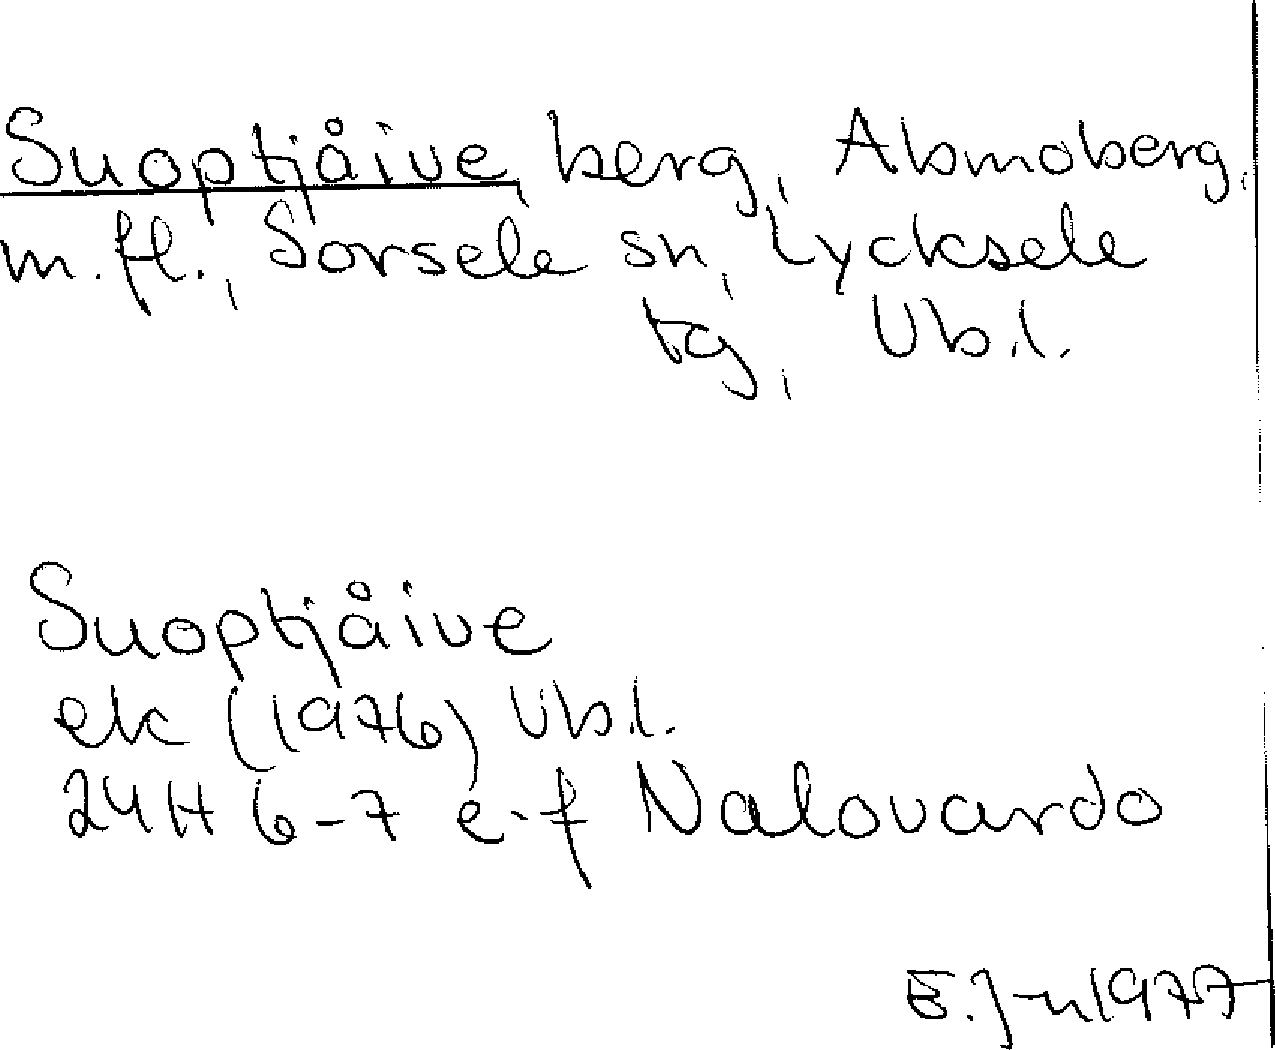 Suoptjåive, berg, Abmoberg
m.fl., Sorsele sn, Lycksele
tg, Vb.l.
Suoptjåive
ek (1976) Vb.l.
24H 6-7 e-f Nalovardo
E.J-n 1977